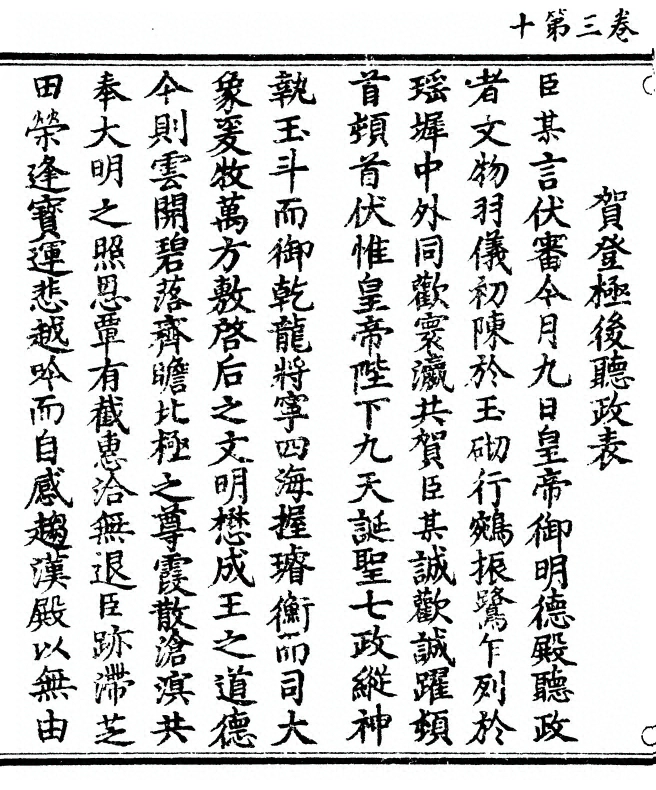 卷三第十
賀登極後聽政表
臣某言伏審今月九日皇帝御明德殿聽政
者文物羽儀初陳於玉砌行鵷振鷺乍列於
瑶墀中外同歡寰瀛共賀臣某誠歡誠躍頓
首頓首伏惟皇帝陛下九天誕聖七政縱神
執玉斗而御乾龍將寧四海握璿衡而司大
象爰牧萬方敷啓后之文明懋成王之道德
今則雲開碧落齊瞻北極之尊霞散滄溟共
奉大明之照恩覃有截惠洽無退臣跡滯芝
田榮逢寶運悲越吟而自感趨漢殿以無由